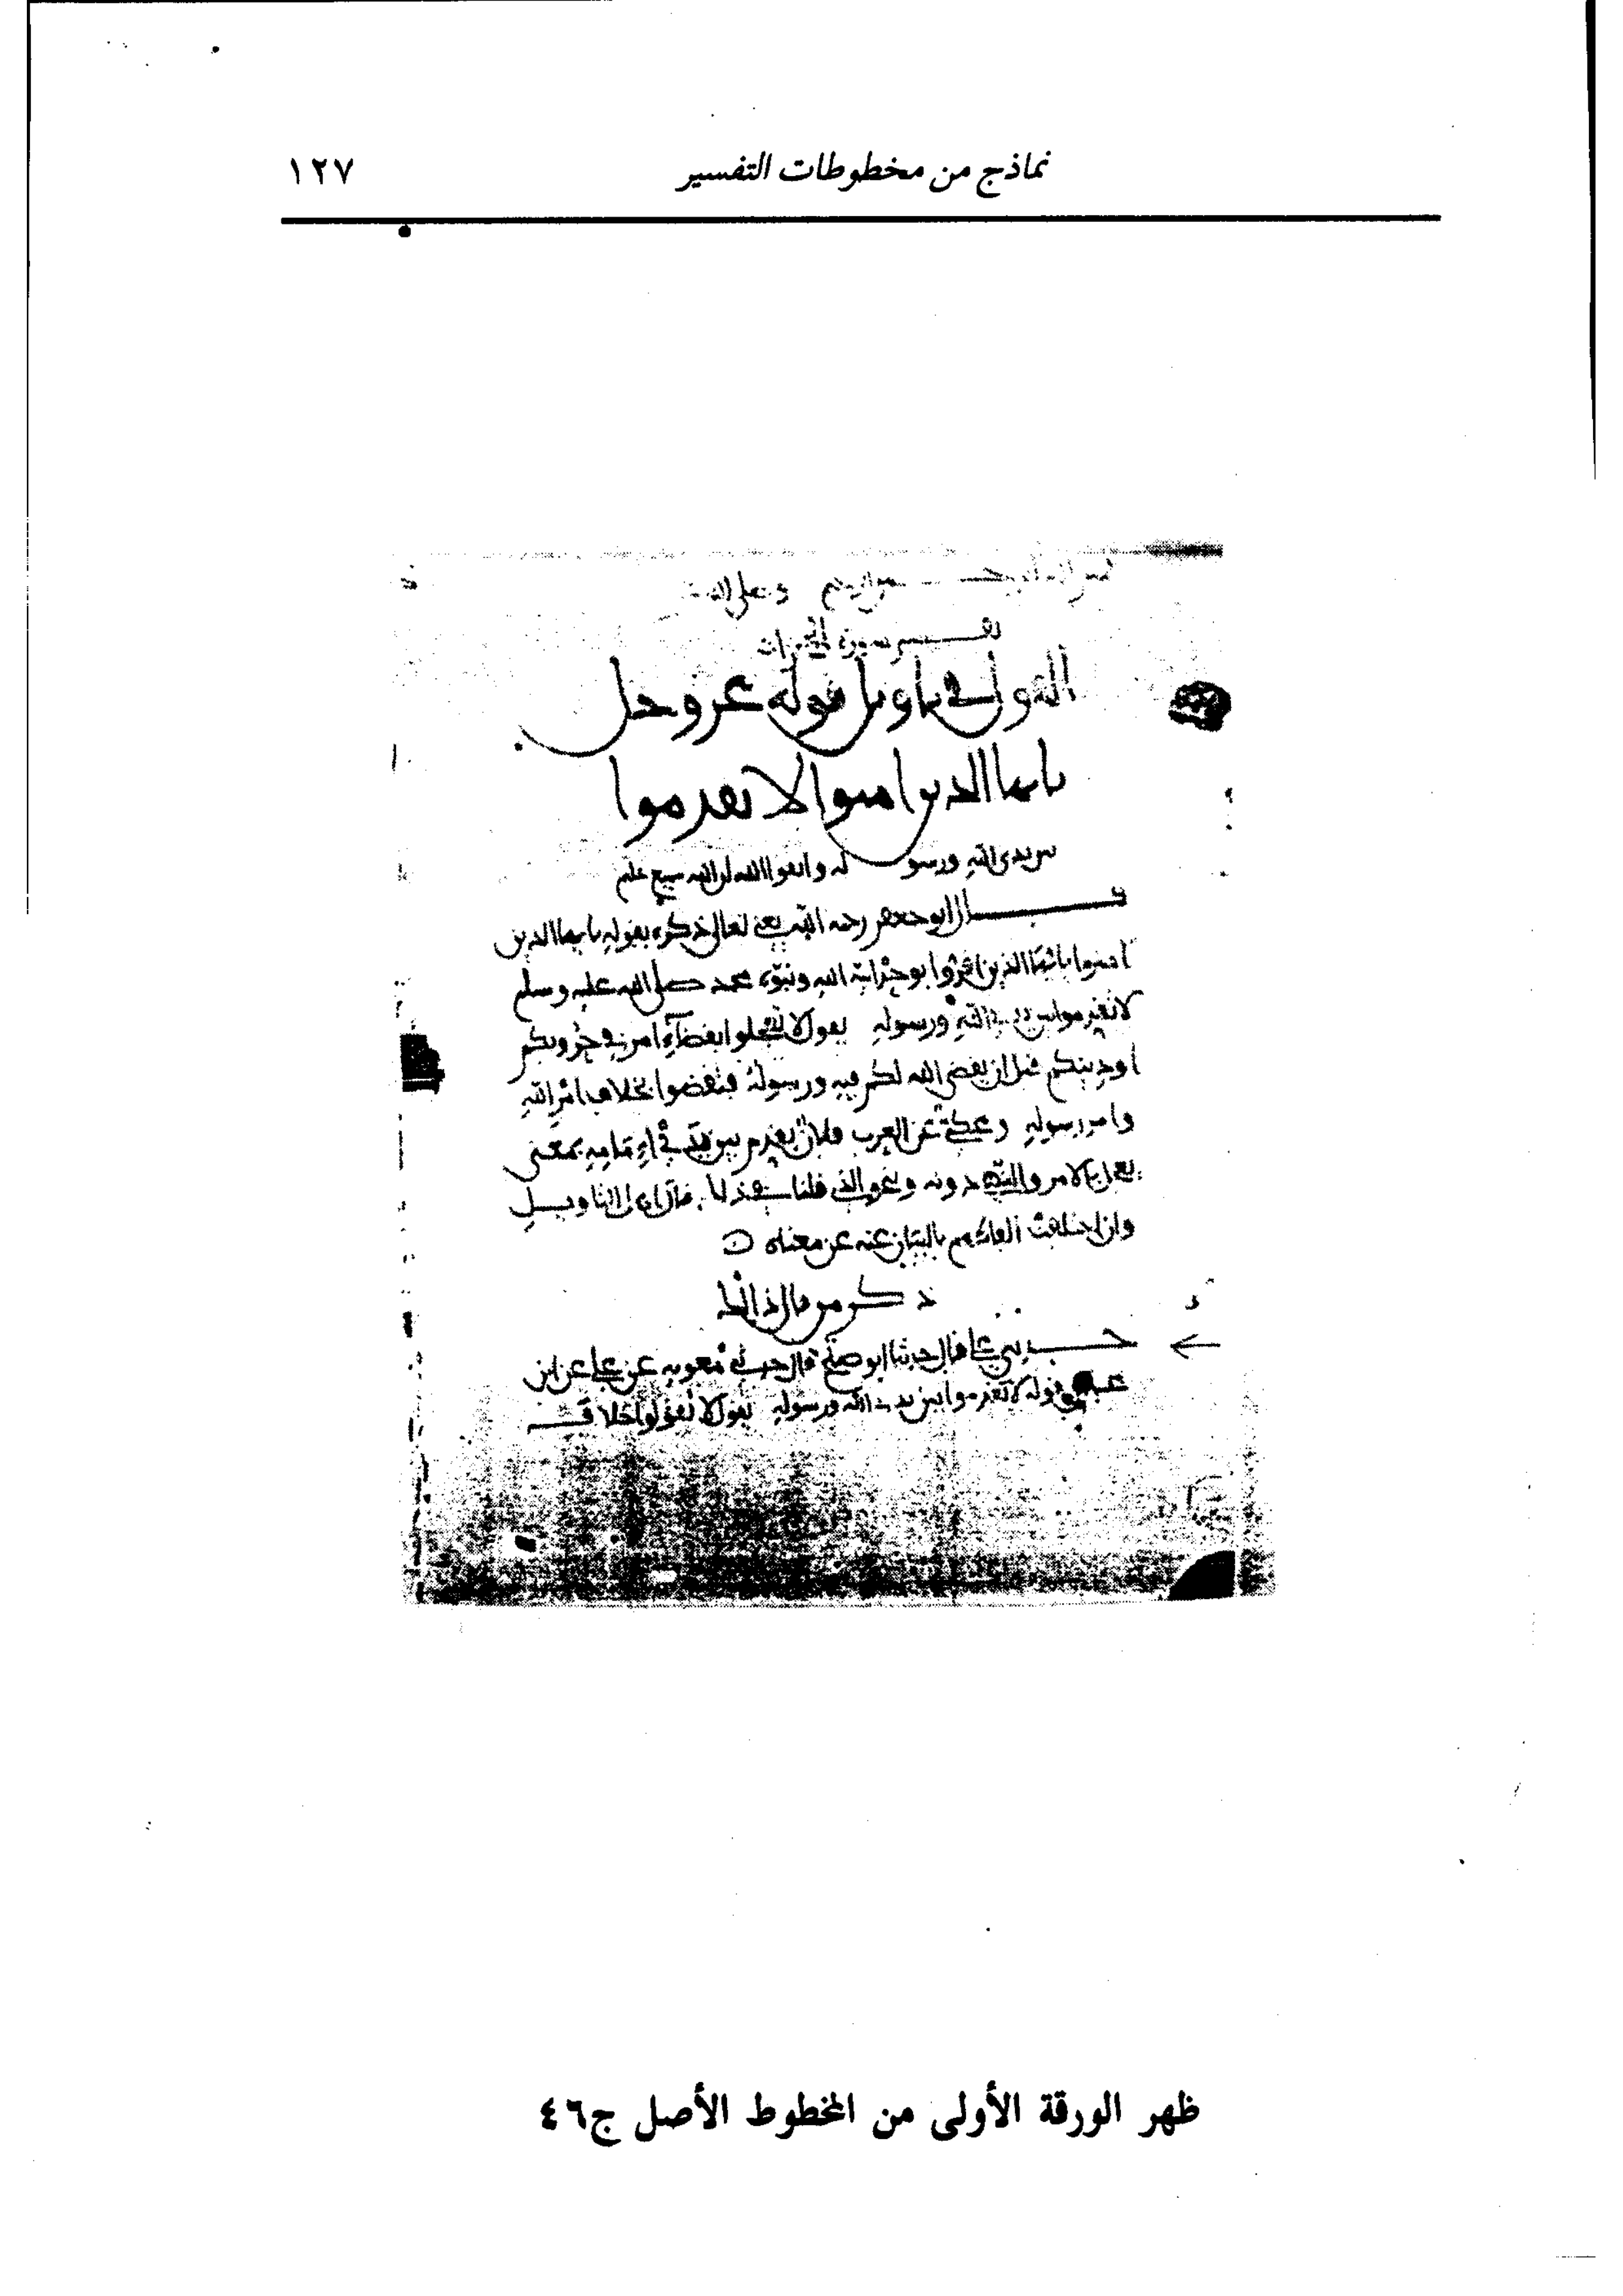 نماذج من مخطوطات التفسير ١٢٧
تفسير سورة الحجرات
القول في تاويل قوله عز وجل
يا يها الذين امنوا لا تقدموا
بين يدي الله ورسوله واتقوا الله ان الله سميع عليم
قال ابو جعفر رحمه الله يعني تعالى ذكره بقوله يا يها الذين
امنوا يا يها الذين اقروا بوحدانية الله ونبوة محمد صلى الله عليه وسلم
لا تقدموا بين يدي الله ورسوله يقول لا تعجلوا بقضاء امر في حروبكم
او دينكم قبل ان يقضي الله لكم فيه ورسوله فتقضوا بخلاف امر الله
وامر رسوله محكي عن العرب فلان يقدم بين يدي امامه بمعنى
يعجل بالامر والنهي دونه وبنحو الذي قلنا في ذلك قال اهل التاويل
وان اختلفت الفاظهم بالبيان عنه عن معناه
ذكر من قال ذلك
حدثني علي قال حدثنا ابو صالح قال حدثني معوية عن علي عن ابن
عباس قوله لا تقدموا بين يدي الله ورسوله يقول لا تقولوا خلاف
ظهر الورقة الأولى من المخطوط الأصل ج٤٦